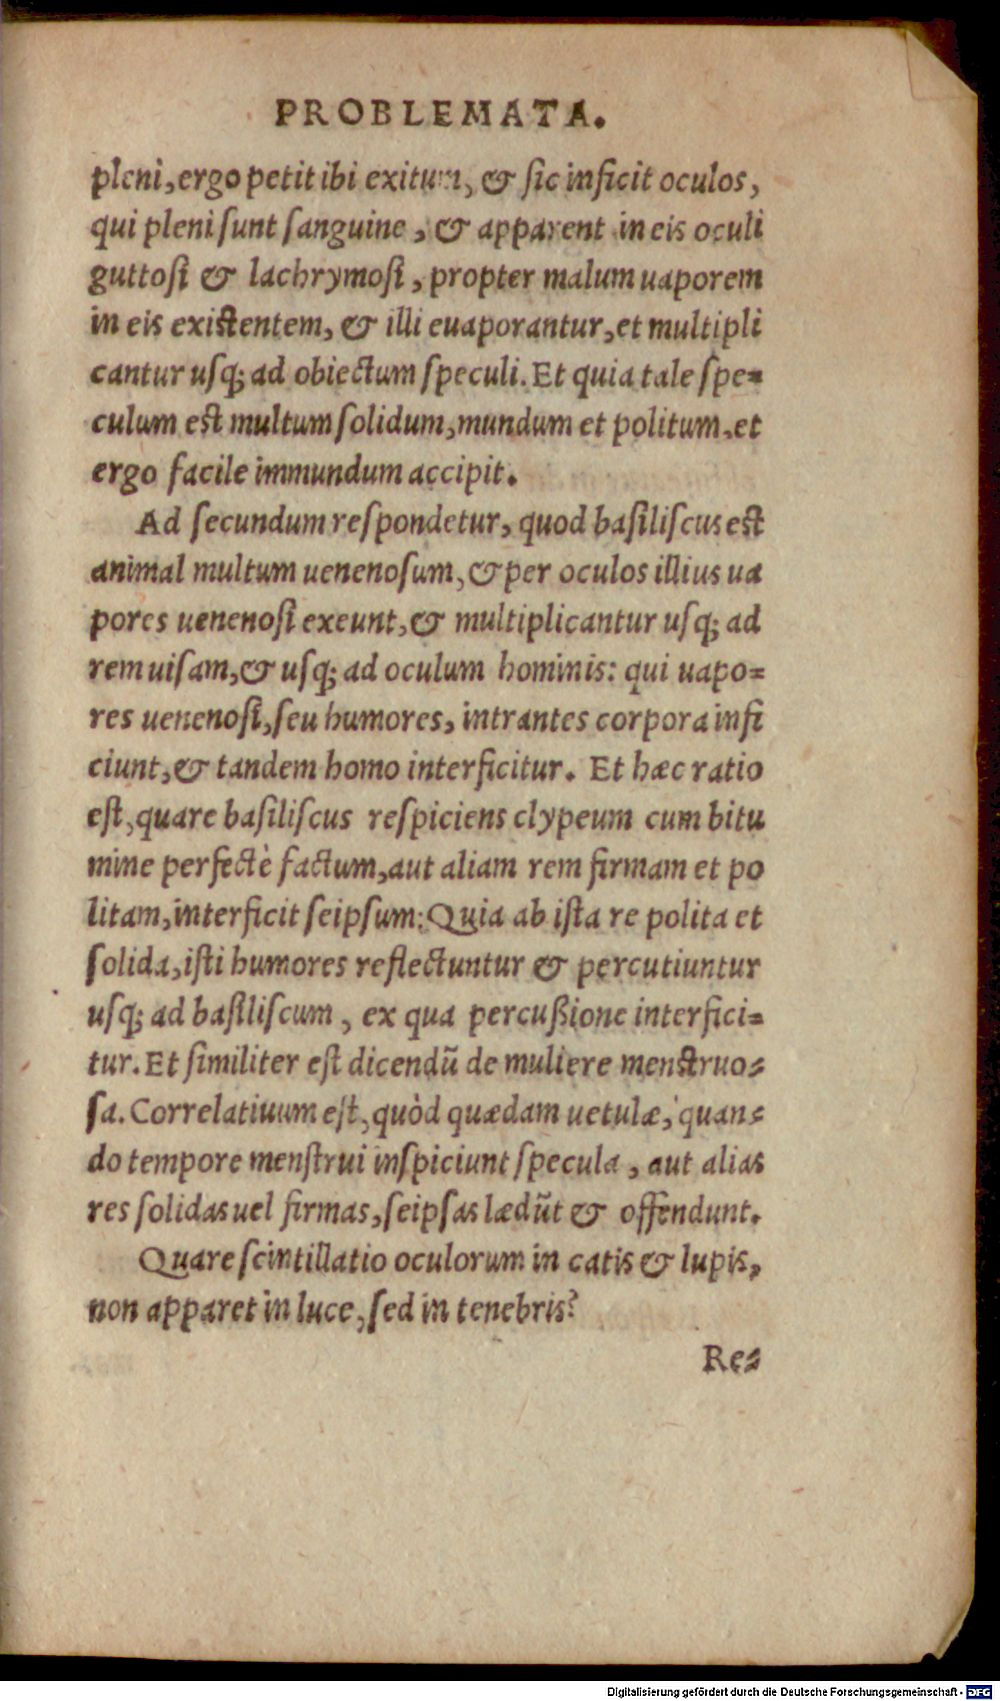 PROBLEMATA.
pleni, ergo petit ibi exitum, & ſic inficit oculos,
qui pleni ſunt ſanguine, & apparent in eis oculi
guttoſi & lachrymoſi, propter malum uaporem
in eis exiſtentem, & illi euaporantur, et multipli
cantur uſq; ad obiectum ſpeculi. Et quia tale ſpe=
culum eſt multum ſolidum, mundum et politum, et
ergo facile immundum accipit.
Ad ſecundum reſpondetur, quod baſiliſcus eſt
animal multum uenenoſum, & per oculos illius ua
pores uenenoſi exeunt, & multiplicantur uſq; ad
rem uiſam, & uſq; ad oculum hominis: qui uapo=
res uenenoſi, ſeu humores, intrantes corpora infi
ciunt, & tandem homo interficitur. Et hæc ratio
eſt, quare baſiliſcus reſpiciens clypeum cum bitu
mine perfectè factum, aut aliam rem firmam et po
litam, interficit ſeipſum: Quia ab iſta re polita et
ſolida, iſti humores reflectuntur & percutiuntur
uſq; ad baſiliſcum, ex qua percußione interfici=
tur. Et ſimiliter eſt dicendũ de muliere menſtruo=
ſa. Correlatiuum eſt, quòd quædam uetulæ, quan=
do tempore menſtrui inſpiciunt ſpecula, aut alias
res ſolidas uel firmas, ſeipſas lædũt & offendunt.
Quare ſcintillatio oculorum in catis & lupis,
non apparet in luce, ſed in tenebris?
Re=
Digitalisierung gefördert durch die Deutsche Forschungsgemeinschaft - DFG